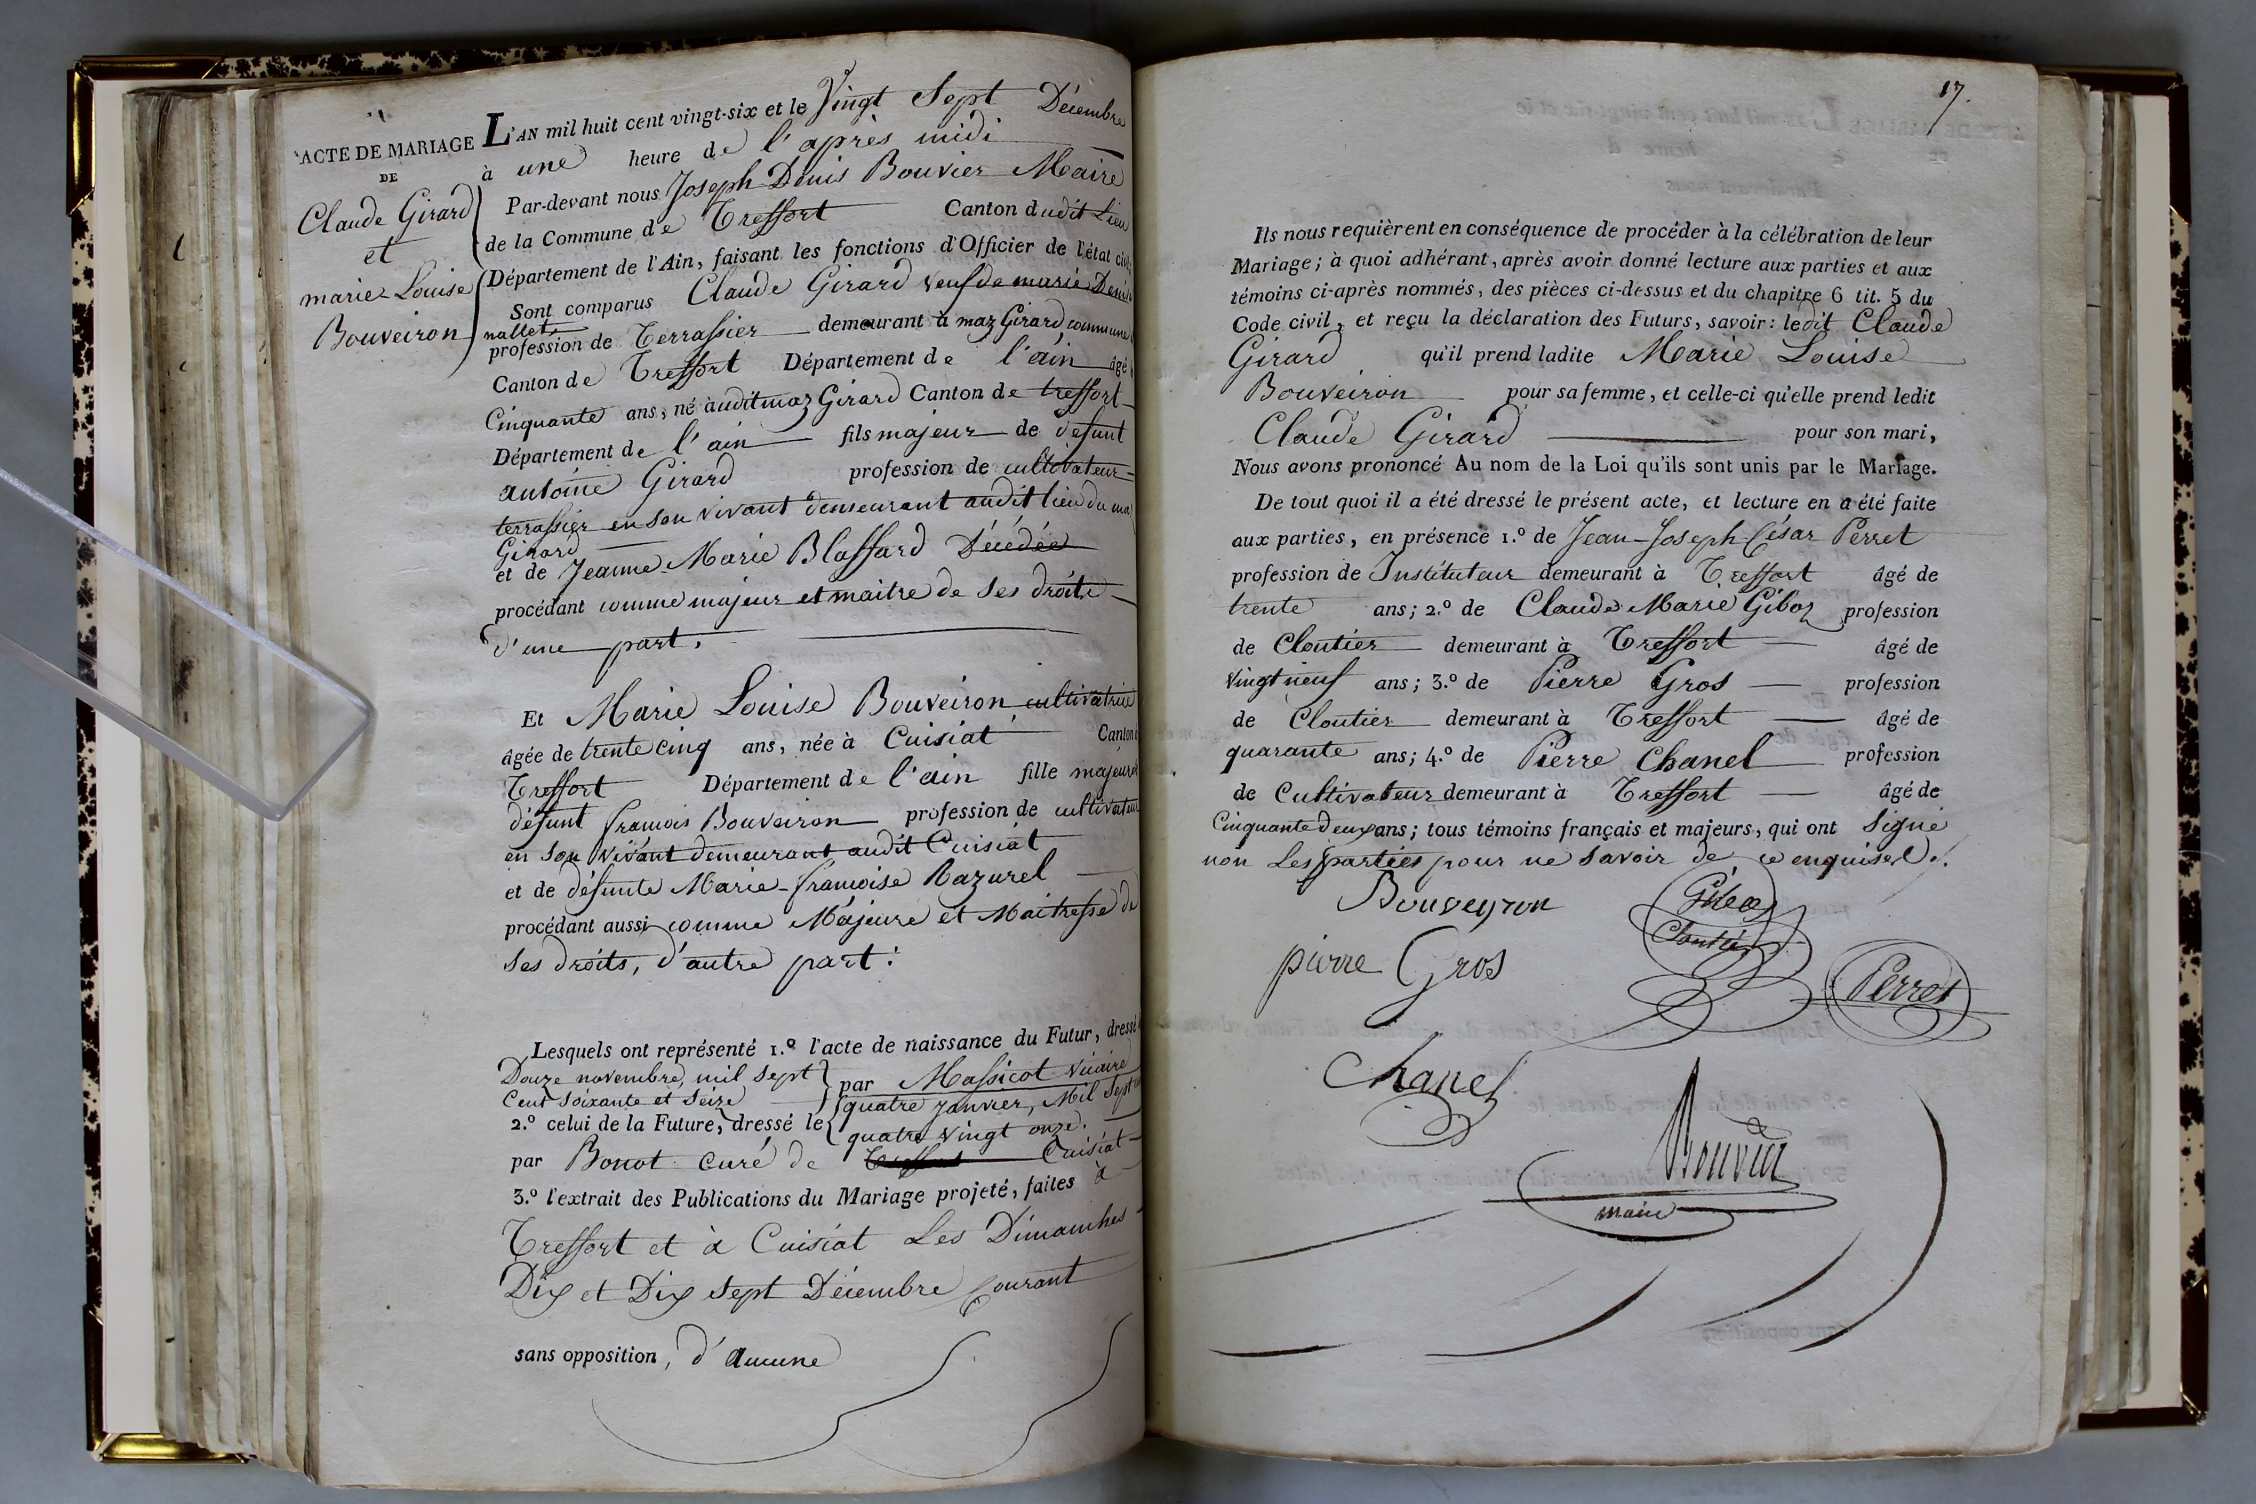 ACTE DE MARIAGE
DE
Claude Girard
et
marie Louise
Bouveiron
L'AN mil huit cent vingt-six et le Vingt Sept Décembre
à une heure de l'après midi
Par-devant nous Joseph Denis Bouvier Maire
de la Commune de Treffort Canton dudit Lieu
Département de l'Ain, faisant les fonctions d'Officier de l'état civil
Sont comparus Claude Girard veuf de marie Denise
nallet,
profession de Terrassier demeurant à maz Girard commune
Canton de Treffort Département de l'ain âgé
Cinquante ans, né audit maz Girard Canton de treffort
Département de l'ain fils majeur de défunt
antoine Girard profession de cultivateur
terrassier en son vivant demeurant audit lieu du ma
Girard
et de Jeanne Marie Blassard Décédée
procédant comme majeur et maitre de ses droits
d'une part.
Et Marie Louise Bouveiron cultivatrice
âgée de trente cinq ans, née à Cuisiat Canton
Treffort Département de l'ain fille majeure
défunt françois Bouveiron profession de cultivateur
en son vivant demeurant audit Cuisiat
et de défunte Marie-françoise Razurel
procédant aussi comme Majeure et Maitresse de
ses droits, d'autre part.
Lesquels ont représenté 1.º l'acte de naissance du Futur, dressé
Douze novembre, mil sept
Cent soixante et seize
par Massicot vicaire
2.º celui de la Future, dressé le quatre janvier, Mil Sept
quatre vingt onze.
par Bonot curé de Cuisiat
3.º l'extrait des Publications du Mariage projeté, faites à
Treffort et à Cuisiat Les Dimanches
Dix et Dix sept Décembre Courant
sans opposition, d'aucune
17.
Ils nous requièrent en conséquence de procéder à la célébration de leur
Mariage; à quoi adhérant, après avoir donné lecture aux parties et aux
témoins ci-après nommés, des pièces ci-dessus et du chapitre 6 tit. 5 du
Code civil, et reçu la déclaration des Futurs, savoir: ledit Claude
Girard qu'il prend ladite Marie Louise
Bouveiron pour sa femme, et celle-ci qu'elle prend ledit
Claude Girard pour son mari,
Nous avons prononcé Au nom de la Loi qu'ils sont unis par le Mariage.
De tout quoi il a été dressé le présent acte, et lecture en a été faite
aux parties, en présence 1.º de Jean-Joseph César Perret
profession de Instituteur demeurant à Treffort âgé de
trente ans; 2.º de Claude Marie Giboz profession
de Cloutier demeurant à Treffort âgé de
vingt neuf ans; 3.º de Pierre Gros profession
de Cloutier demeurant à Treffort âgé de
quarante ans; 4.º de Pierre Chanel profession
de Cultivateur demeurant à Treffort âgé de
Cinquante deux ans; tous témoins français et majeurs, qui ont signé
non Les parties pour ne savoir de ce enquises.
Bouveyron
Giboz
Cloutier
pierre Gros
Perret
Chanel
Bouvier
maire